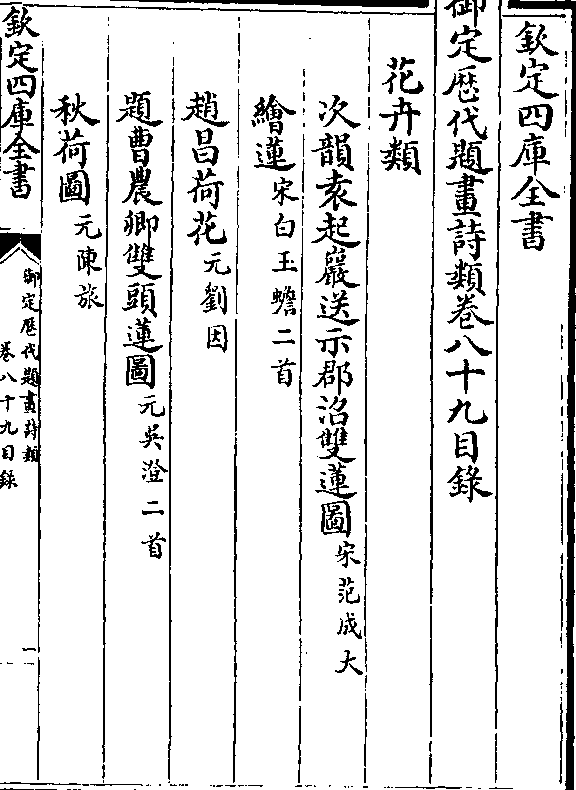 欽定四庫全書
御定歷代題畫詩類卷八十九目錄
花卉類
次韻袁起巖送示郡沼雙蓮圖宋范成大
繪蓮宋白玉蟾二首
趙昌荷花元劉因
題曹農卿雙頭蓮圖元吳澄二首
秋荷圖元陳旅
欽定四庫全書
御定歷代題畫詩類
卷八十九目錄
一